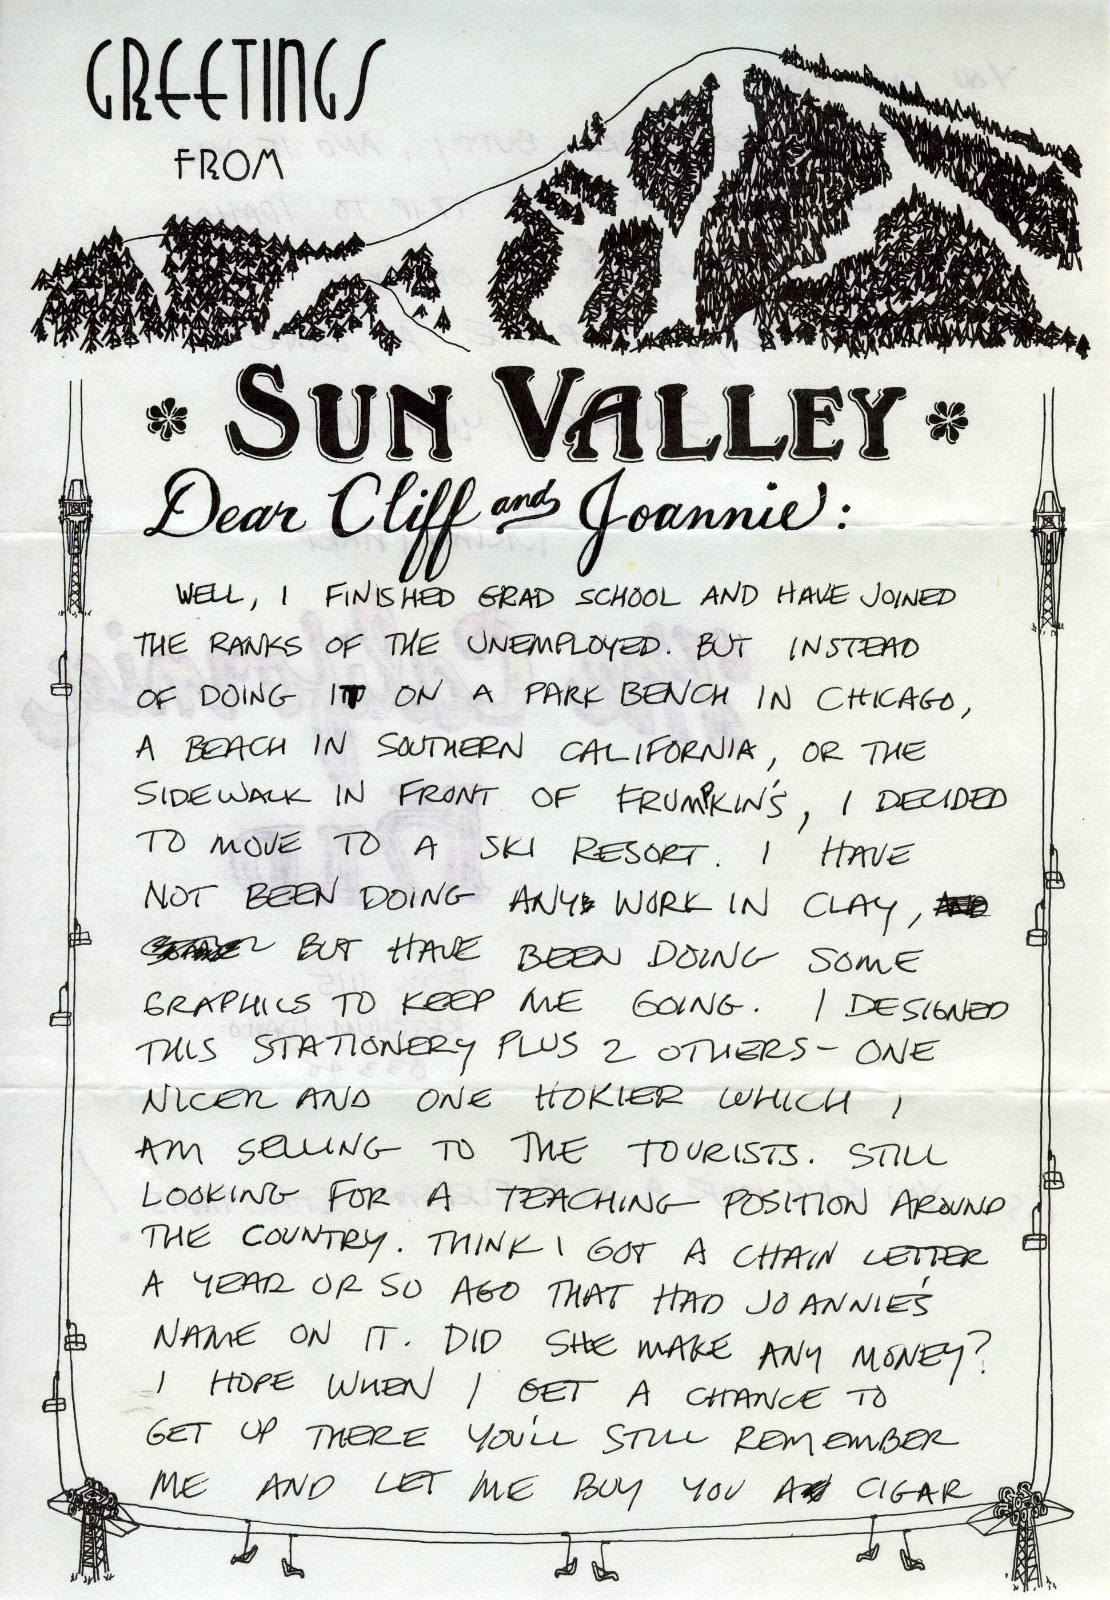 GREETINGS
FROM
SUN VALLEY
Dear Cliff and Joannie:
WELL, I FINISHED GRAD SCHOOL AND HAVE JOINED
THE RANKS OF THE UNEMPLOYED. BUT INSTEAD
OF DOING IT ON A PARK BENCH IN CHICAGO,
A BEACH IN SOUTHERN CALIFORNIA, OR THE
SIDEWALK IN FRONT OF FRUMPKIN'S, I DECIDED
TO MOVE TO A SKI RESORT. I HAVE
NOT BEEN DOING ANY WORK IN CLAY,
BUT HAVE BEEN DOING SOME
GRAPHICS TO KEEP ME GOING. I DESIGNED
THIS STATIONERY PLUS 2 OTHERS - ONE
NICER AND ONE HOKIER WHICH I
AM SELLING TO THE TOURISTS. STILL
LOOKING FOR A TEACHING POSITION AROUND
THE COUNTRY. THINK I GOT A CHAIN LETTER
A YEAR OR SO AGO THAT HAD JOANNIE'S
NAME ON IT. DID SHE MAKE ANY MONEY?
I HOPE WHEN I GET A CHANCE TO
GET UP THERE YOU'LL STILL REMEMBER
ME AND LET ME BUY YOU A CIGAR